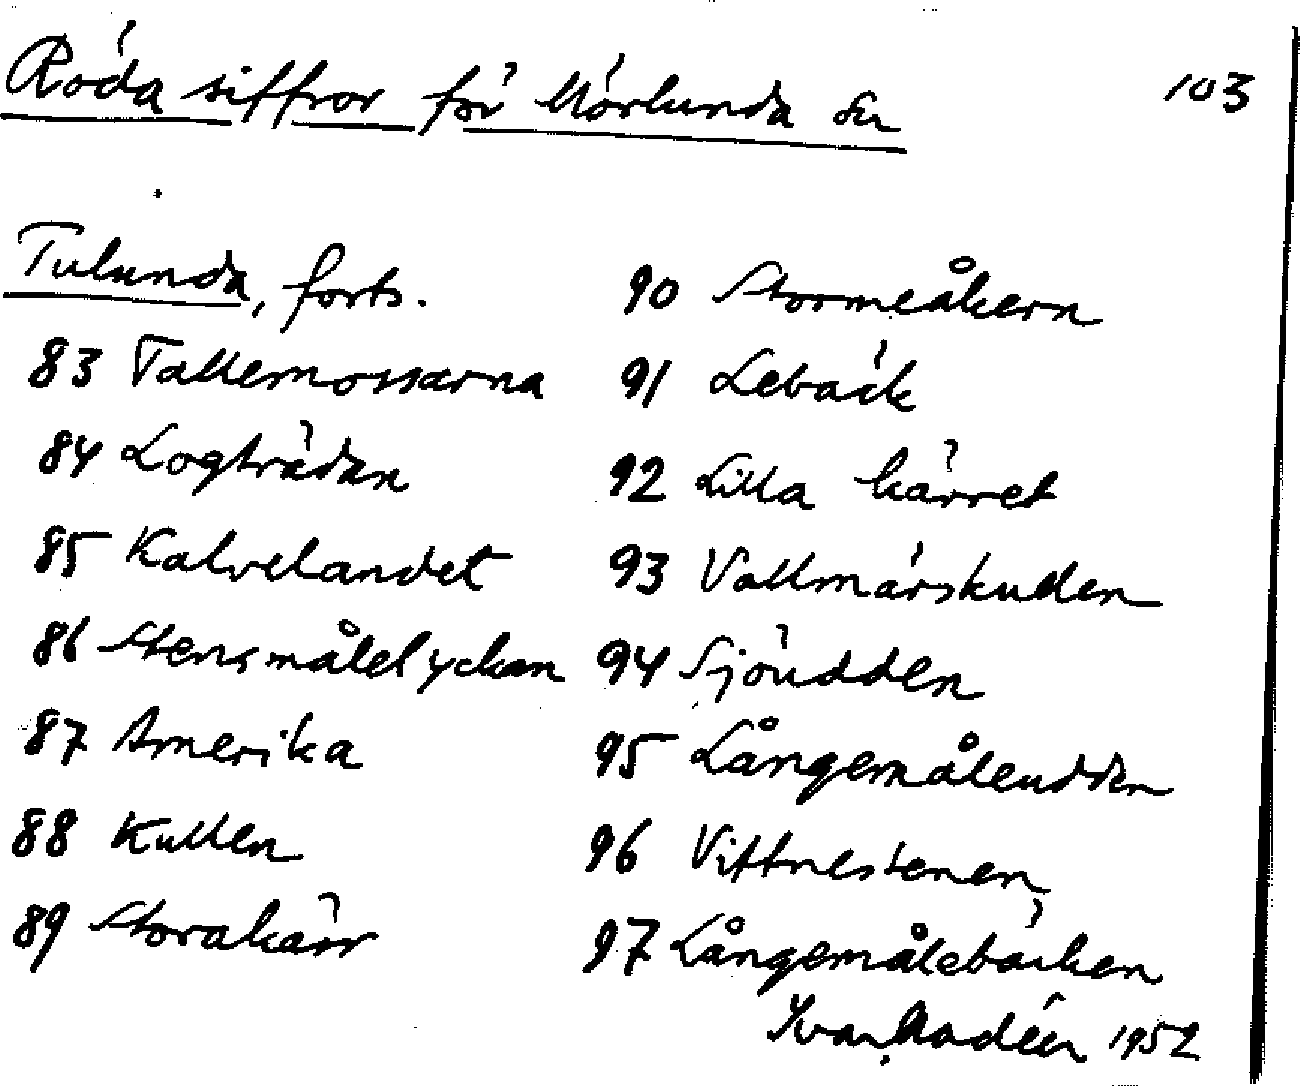 Röda siffror för Mörlunda sn
103
Tulunda, forts.
83 Tallemossarna
84 Logträdan
85 Kalvelandet
86 Stensmålelyckan
87 Amerika
88 Kullen
89 Storakärr
90 Stormeåkern
91 Lebäck
92 Lilla kärret
93 Vallmärskullen
94 Sjöudden
95 Långemåleudden
96 Vittnestenen
97 Långemålebäcken
Ivar Modéer 1952